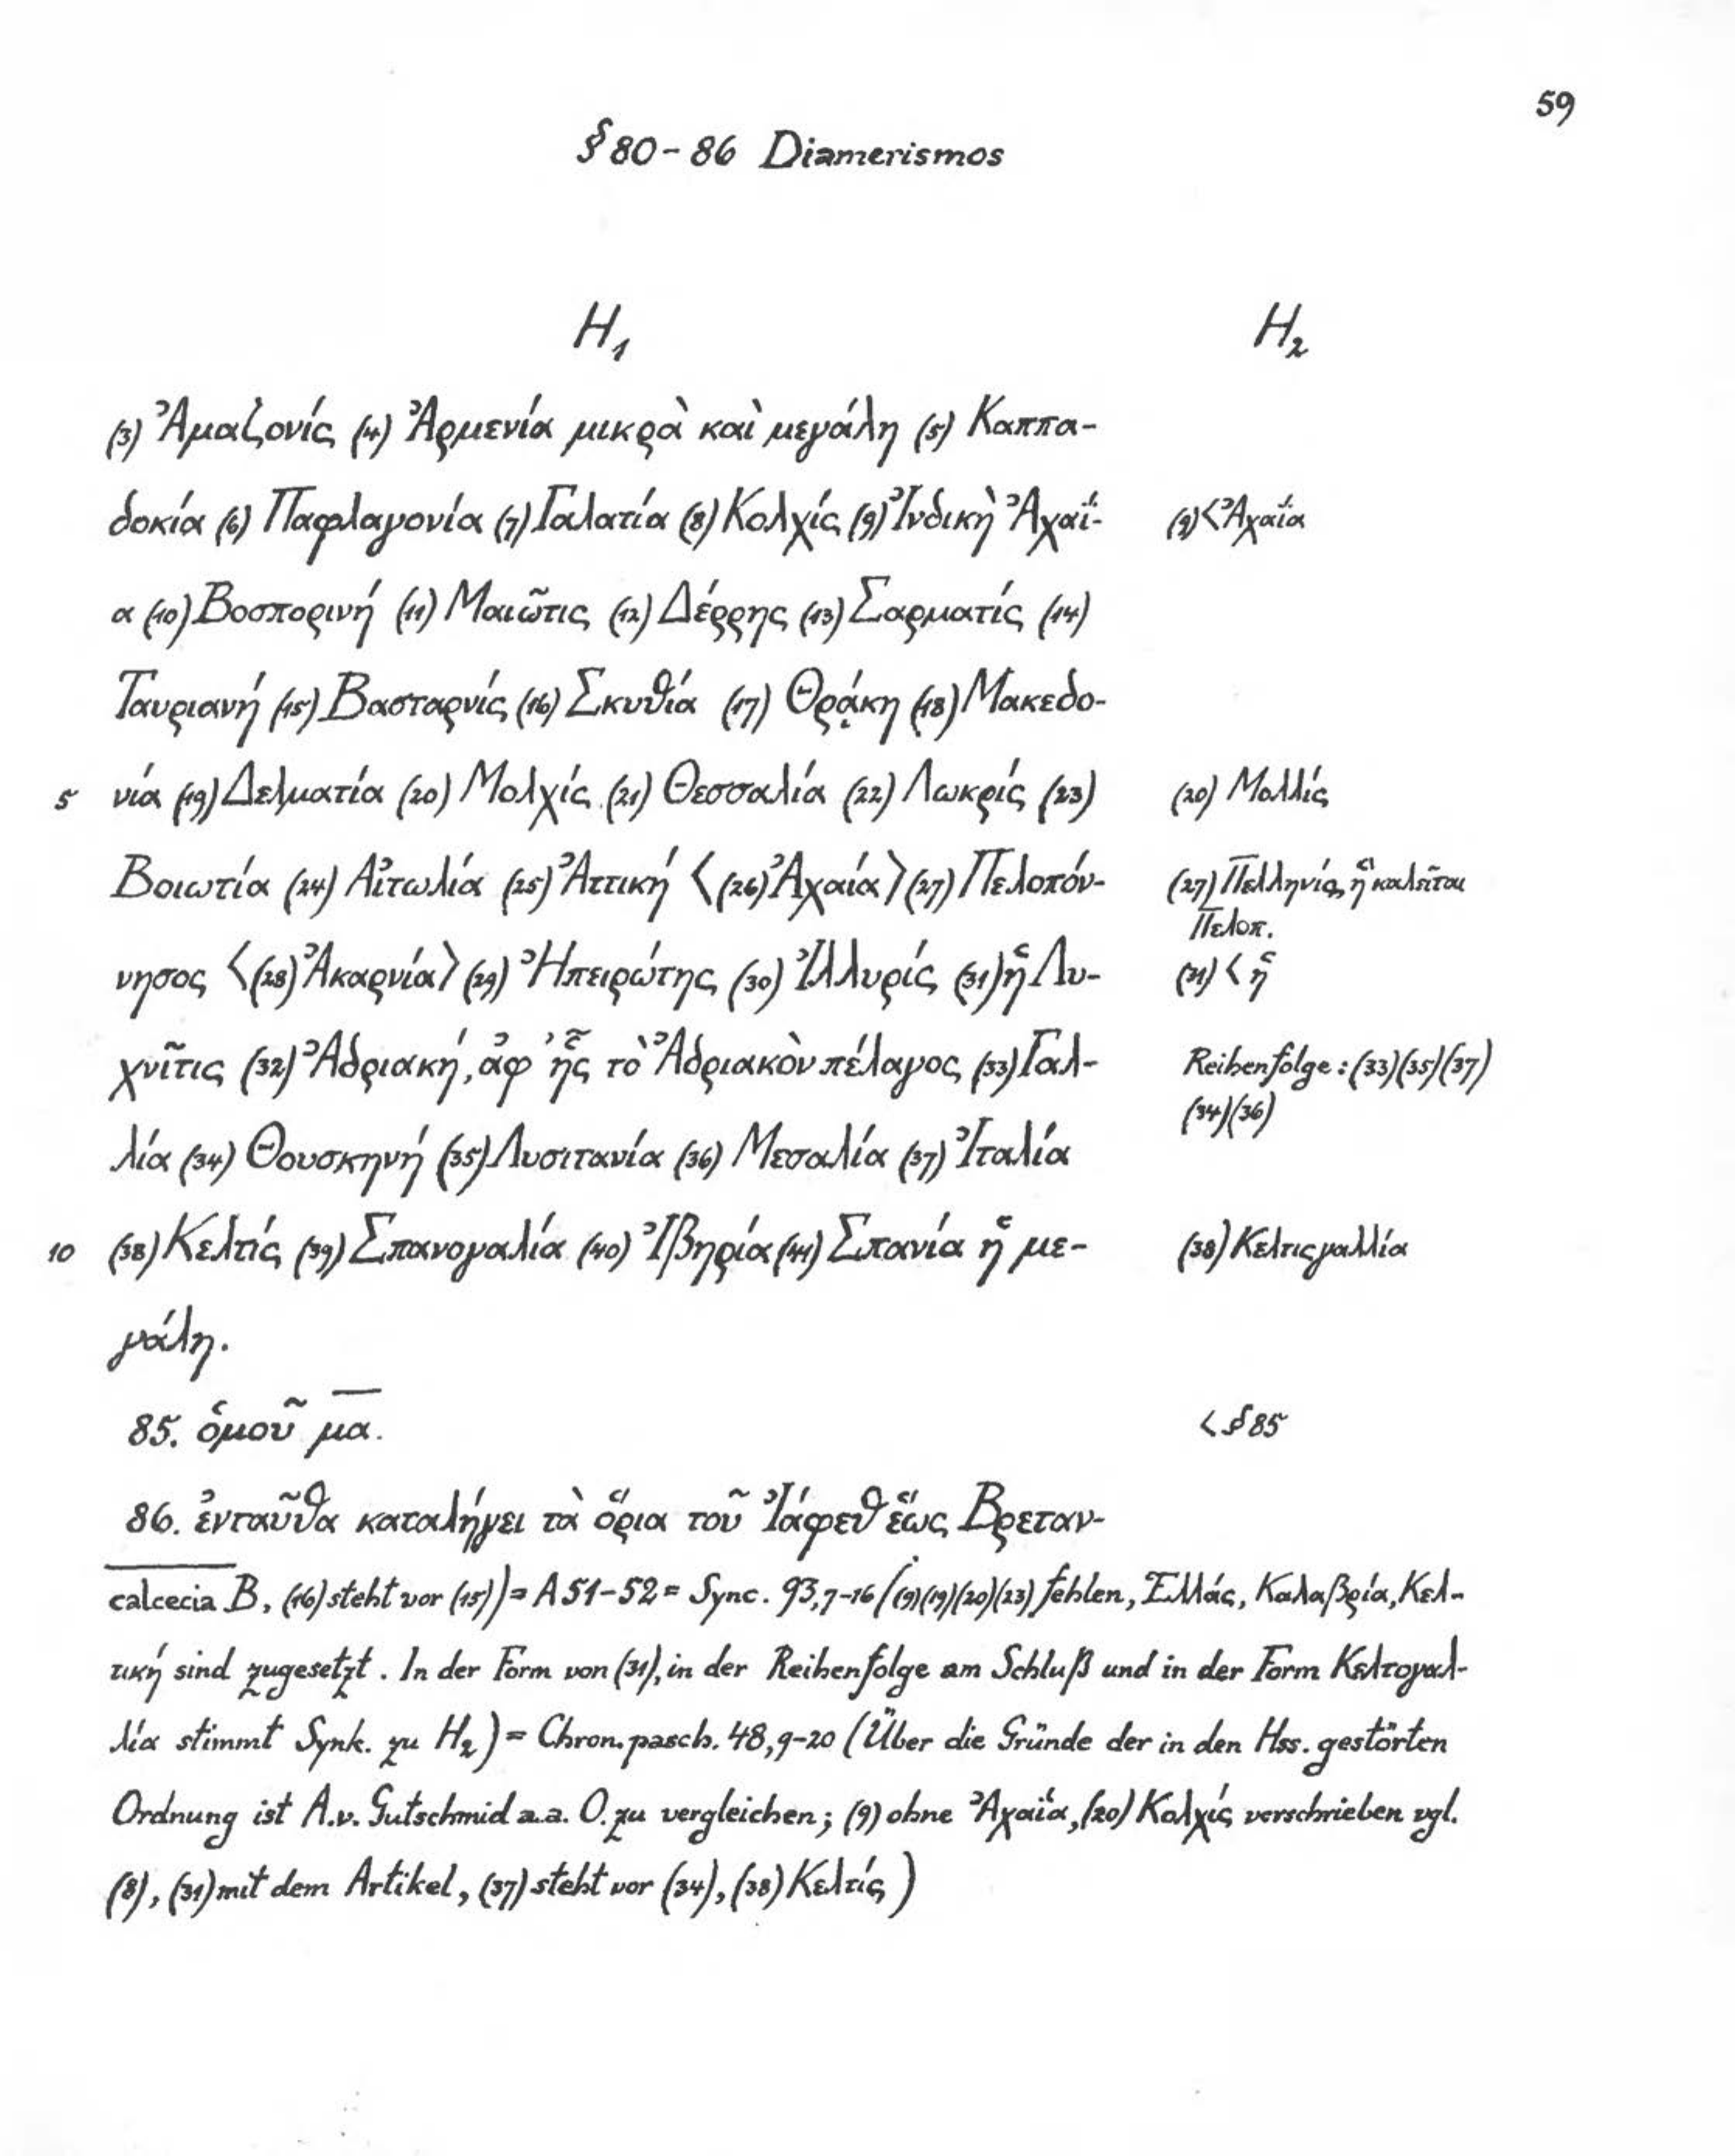 59
§ 80-86 Diamerismos
H₁ H₂
(3) Ἀμαζονίς (4) Ἀρμενία μικρὰ καὶ μεγάλη (5) Καππα-
δοκία (6) Παφλαγονία (7) Γαλατία (8) Κολχίς (9) Ἰνδικὴ Ἀχαΐ- (9) < Ἀχαΐα
α (10) Βοσπορινή (11) Μαιῶτις (12) Δέρρης (13) Σαρματίς (14)
Ταυριανή (15) Βασταρνίς (16) Σκυθία (17) Θρᾴκη (18) Μακεδο-
5 νία (19) Δελματία (20) Μολχίς (21) Θεσσαλία (22) Λωκρίς (23) (20) Μολλίς
Βοιωτία (24) Αἰτωλία (25) Ἀττική ⟨(26) Ἀχαία⟩ (27) Πελοπόν- (27) Πελληνίς, ἣ καλεῖται
Πελοπ.
νησος ⟨(28) Ἀκαρνία⟩ (29) Ἠπειρώτης (30) Ἰλλυρίς (31) ἡ Λυ- (31) < ἡ
χνῖτις (32) Ἀδριακή, ἀφ' ἧς τὸ Ἀδριακὸν πέλαγος (33) Γαλ- Reihenfolge: (33)(35)(37)
(34)(36)
λία (34) Θουσκηνή (35) Λυσιτανία (36) Μεσαλία (37) Ἰταλία
10 (38) Κελτίς (39) Σπανογαλία (40) Ἰβηρία (41) Σπανία ἡ με- (38) Κελτιςγαλλία
γάλη.
85. ὁμοῦ μ̅α̅. < § 85
86. ἐνταῦθα καταλήγει τὰ ὅρια τοῦ Ἰάφεθ ἕως Βρεταν-
calcecia B, (16) steht vor (15)) = A 51-52 = Sync. 93,7-16 ((9)(19)(20)(23) fehlen, Ἑλλάς, Καλαβρία, Κελ-
τική sind zugesetzt. In der Form von (31), in der Reihenfolge am Schluß und in der Form Κελτογαλ-
λία stimmt Synk. zu H₂) = Chron. pasch. 48,9-20 (Über die Gründe der in den Hss. gestörten
Ordnung ist A. v. Gutschmid a. a. O. zu vergleichen; (9) ohne Ἀχαΐα, (20) Κολχίς verschrieben vgl.
(8), (31) mit dem Artikel, (37) steht vor (34), (38) Κελτίς)